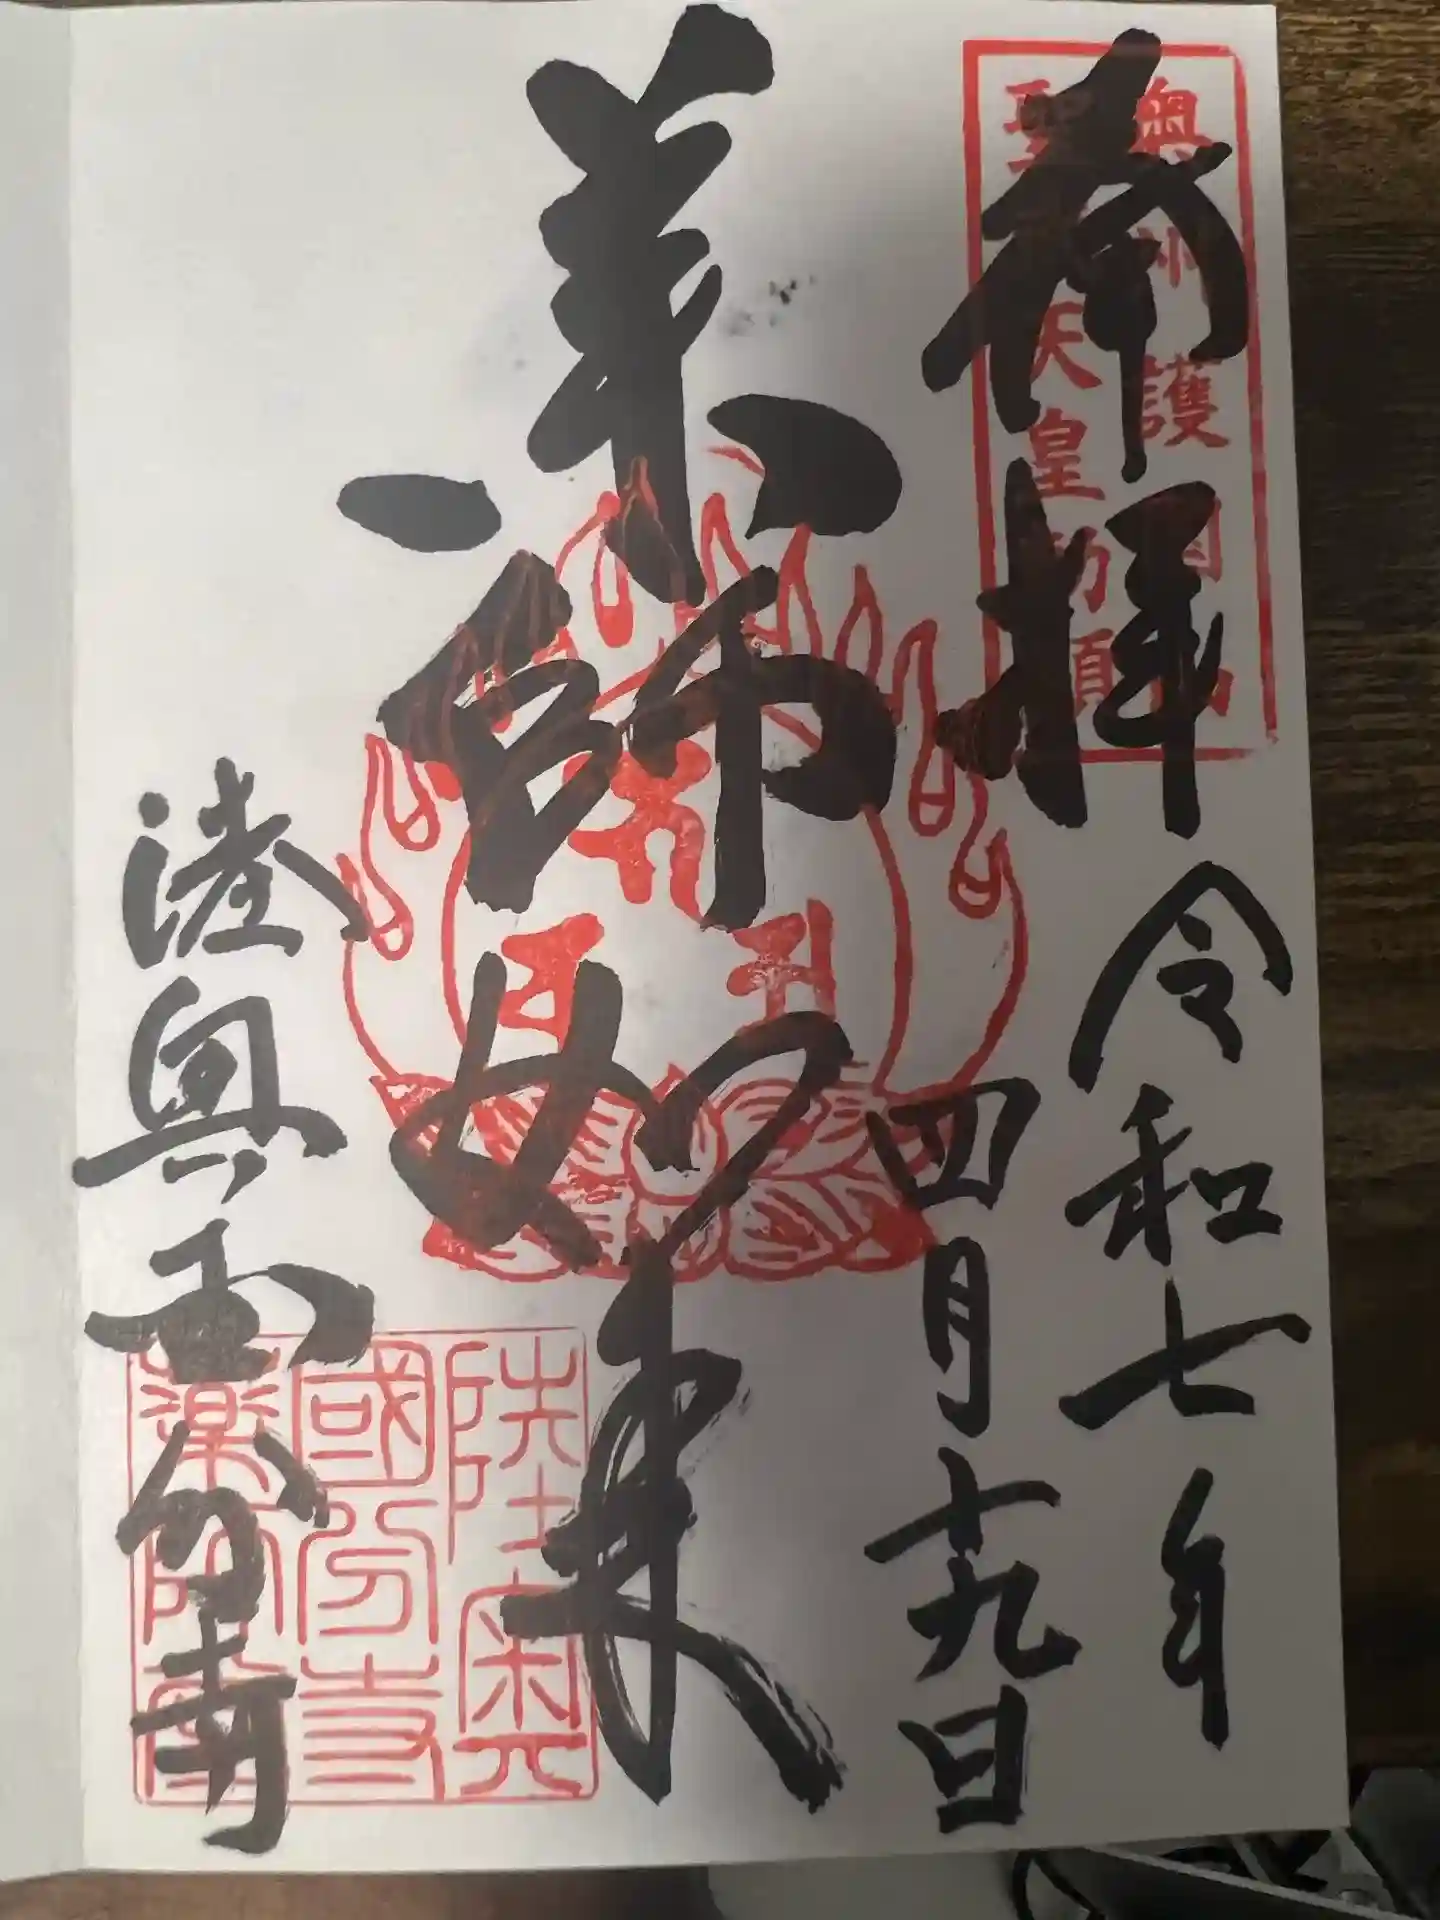 奉拝
令和七年
四月十九日
薬師如来
陸奥国分寺
奥州護国山
聖武天皇勅願
陸奥
國分寺
薬師堂